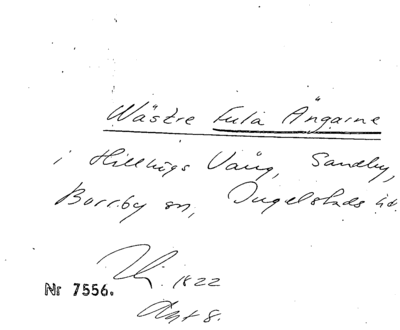 Wästre Fula Ängarne
i Hillhögs Vång, Sandby,
Borrby sn, Ingelstads hd.
1822
Nr 7556.
Akt 8.